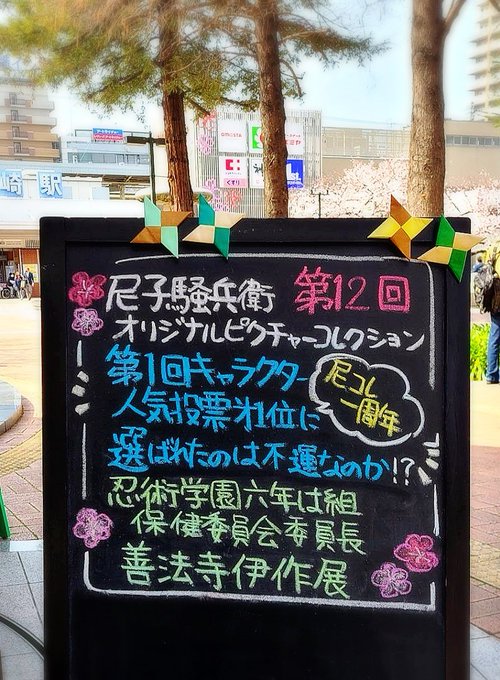 崎駅
尼子騒兵衛 第12回
オリジナルピクチャーコレクション
第1回キャラクター
人気投票第1位に
選ばれたのは不運なのか!?
尼コレ
一周年
忍術学園六年は組
保健委員会委員長
善法寺伊作展